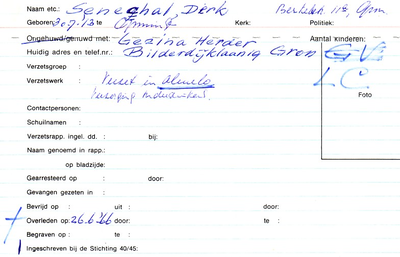 Naam etc.: Senechal Dirk
Geboren: 30.7.'13 te Ommen Kerk: Politiek:
Ongehuwd/gehuwd met: Gezina Herder Aantal kinderen:
Huidig adres en telef.nr.: Bilderdijklaan Gron
Verzetsgroep :
Verzetswerk : Verzet in Almelo
Verzorging onderduikers.
LC
Foto
Contactpersonen:
Schuilnaam :
Verzetsrapp. ingel. dd. : bij:
Naam genoemd in rapp.:
op bladzijde:
Gearresteerd op : door:
Gevangen gezeten in :
Bevrijd op : uit : door:
Overleden op: 26.6.'66 door: te :
Begraven op : te :
Ingeschreven bij de Stichting 40/45: